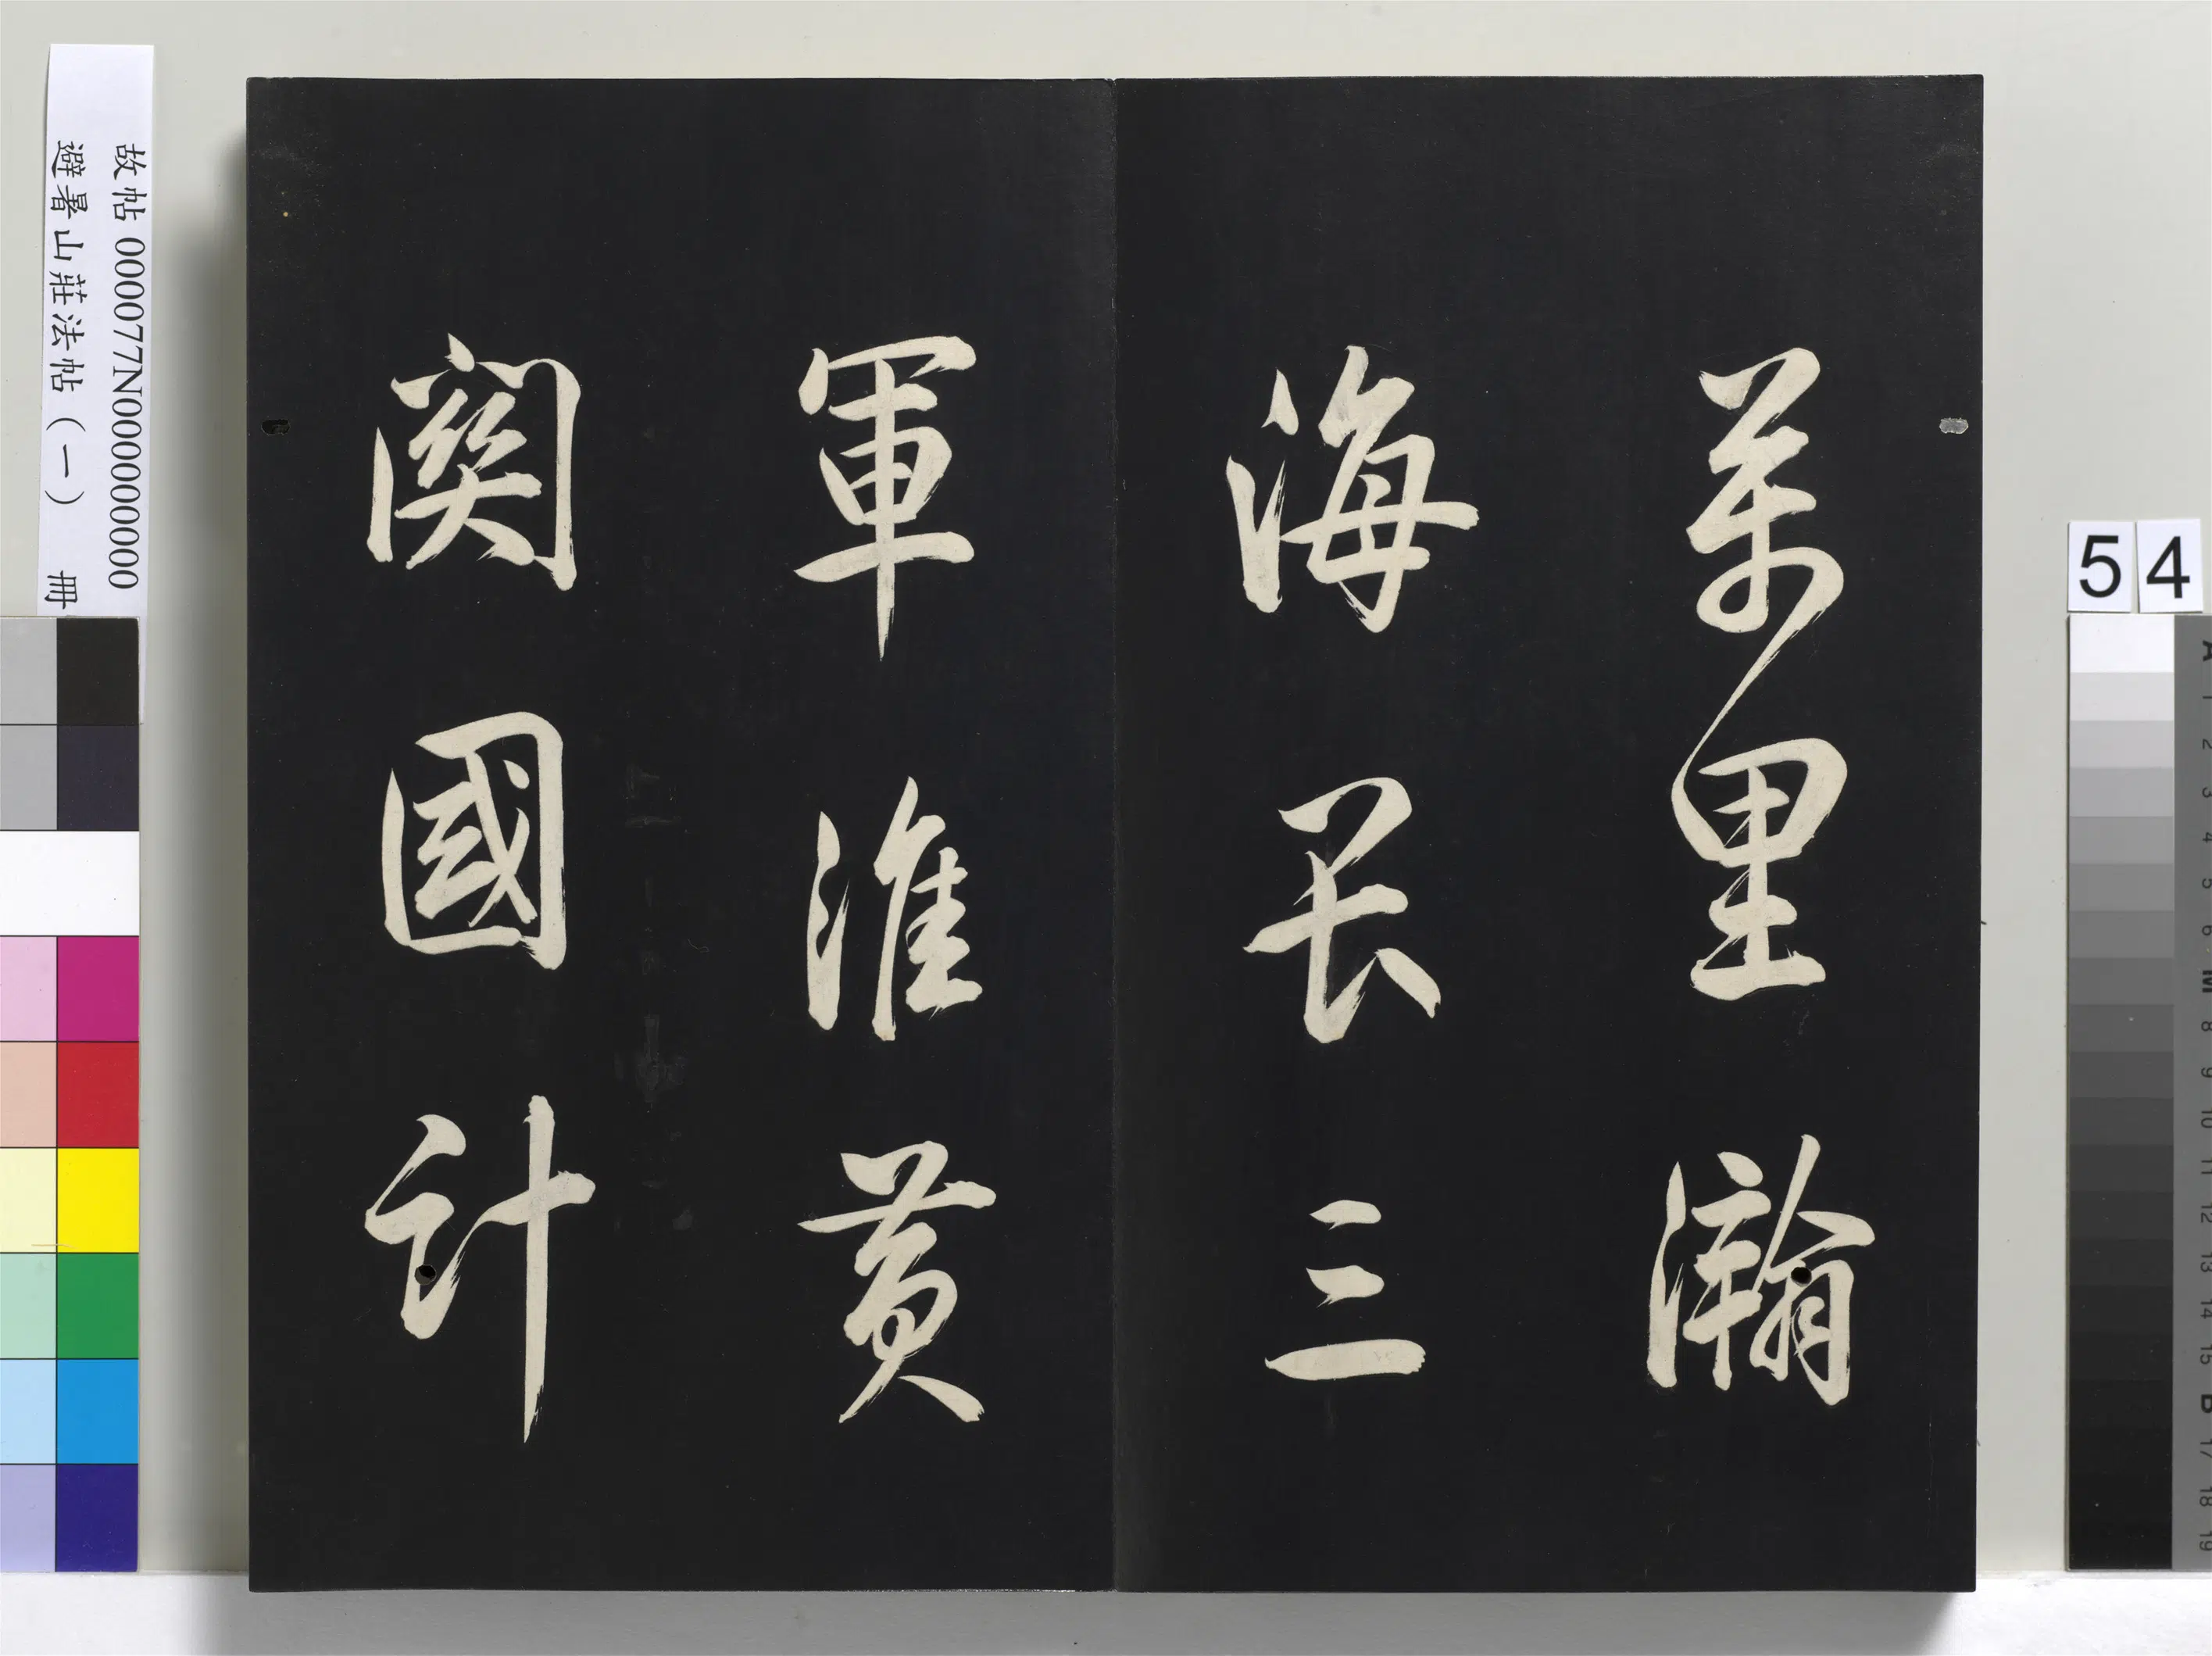 萬里瀚
海長三
軍淮黃
關國計
故帖 000077N000000000
避暑山莊法帖（一） 冊
54
A
1
2
3
4
5
6
M
8
9
10
11
12
13
14
15
B
17
18
19